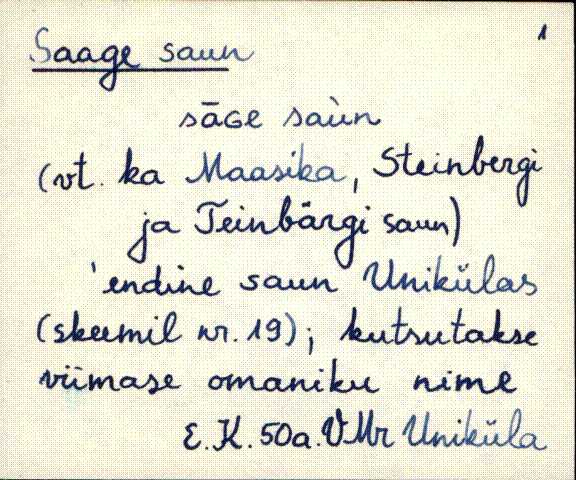 1
Saage saun
sāGe saùn
(vt. ka Maasika, Steinbergi
ja Teinbärgi saun)
'endine saun Unikülas
(skeemil nr. 19); kutsutakse
viimase omaniku nime
E.K. 50a. VMr Uniküla